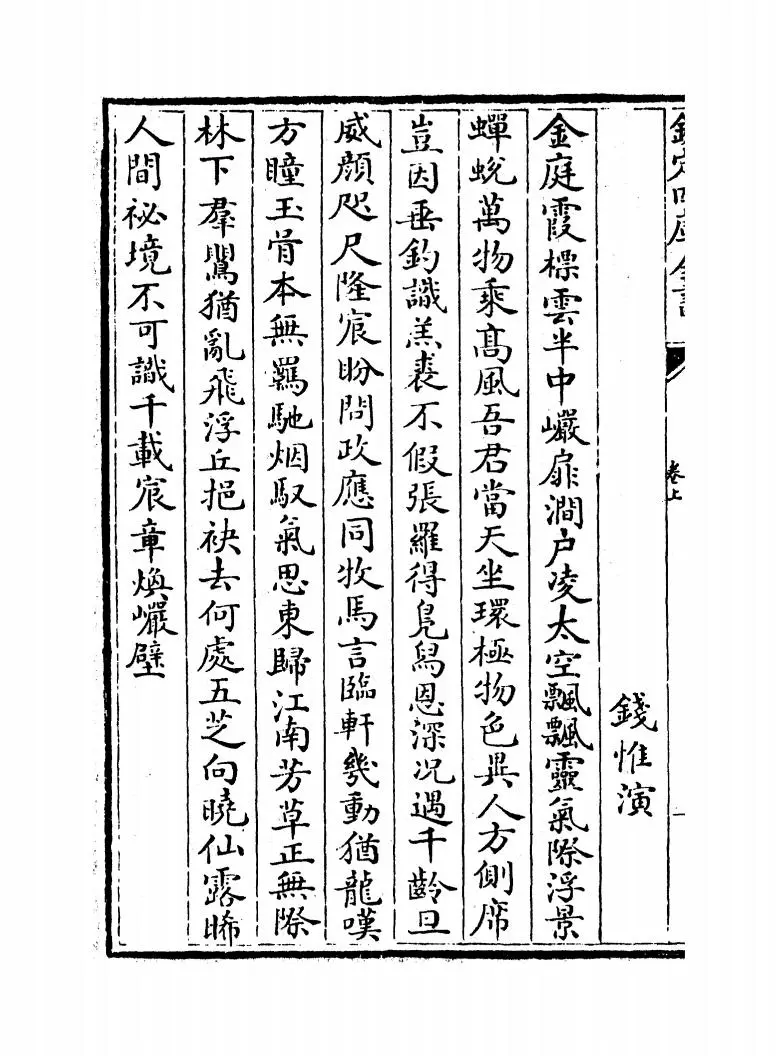 欽定四庫全書
卷上
錢惟演
金庭霞標雲半中巖扉澗户凌太空飄飄靈氣際浮景
蟬蛻萬物乘髙風吾君當天坐環極物色異人方側席
豈因垂釣識羔裘不假張羅得鳬舄恩深况遇千齡旦
威顔咫尺隆宸盼問政應同牧馬言臨軒幾動猶龍嘆
方瞳玉骨本無羈馳烟馭氣思東歸江南芳草正無際
林下羣鸎猶亂飛浮丘挹袂去何處五芝向曉仙露晞
人間祕境不可識千載宸章煥巖壁